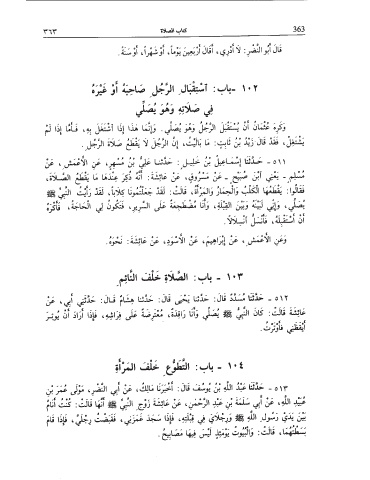 ٣٦٣ كتاب الصلاة 363
قَالَ أَبُو النَّضْرِ: لاَ أَدْرِي، أَقَالَ أَرْبَعِينَ يَوْماً، أَوْ شَهْراً، أَوْ سَنَةً.
١٠٢ - باب: اسْتِقْبَالِ الرَّجُلِ صَاحِبَهُ أَوْ غَيْرَهُ
فِي صَلاَتِهِ وَهُوَ يُصَلِّي
وَكَرِهَ عُثْمَانُ أَنْ يُسْتَقْبَلَ الرَّجُلُ وَهُوَ يُصَلِّي. وَإِنَّمَا هَذَا إِذَا اشْتَغَلَ بِهِ، فَأَمَّا إِذَا لَمْ
يَشْتَغِلْ، فَقَدْ قَالَ زَيْدُ بْنُ ثَابِتٍ: مَا بَالَيْتُ، إِنَّ الرَّجُلَ لاَ يَقْطَعُ صَلاَةَ الرَّجُلِ.
٥١١ - حَدَّثَنَا إِسْمَاعِيلُ بْنُ خَلِيلٍ: حَدَّثَنَا عَلِيُّ بْنُ مُسْهِرٍ، عَنِ الأَعْمَشِ، عَنْ
مُسْلِمٍ - يَعْنِي ابْنَ صُبَيْحٍ - عَنْ مَسْرُوقٍ، عَنْ عَائِشَةَ: أَنَّهُ ذُكِرَ عِنْدَهَا مَا يَقْطَعُ الصَّلاَةَ،
فَقَالُوا: يَقْطَعُهَا الْكَلْبُ وَالْحِمَارُ وَالْمَرْأَةُ، قَالَتْ: لَقَدْ جَعَلْتُمُونَا كِلاَباً، لَقَدْ رَأَيْتُ النَّبِيَّ ﷺ
يُصَلِّي، وَإِنِّي لَبَيْنَهُ وَبَيْنَ الْقِبْلَةِ، وَأَنَا مُضْطَجِعَةٌ عَلَى السَّرِيرِ، فَتَكُونُ لِي الْحَاجَةُ، فَأَكْرَهُ
أَنْ أَسْتَقْبِلَهُ، فَأَنْسَلُّ انْسِلاَلاً.
وَعَنِ الأَعْمَشِ، عَنْ إِبْرَاهِيمَ، عَنِ الأَسْوَدِ، عَنْ عَائِشَةَ: نَحْوَهُ.
١٠٣ - باب: الصَّلاَةِ خَلْفَ النَّائِمِ
٥١٢ - حَدَّثَنَا مُسَدَّدٌ قَالَ: حَدَّثَنَا يَحْيَى قَالَ: حَدَّثَنَا هِشَامٌ قَالَ: حَدَّثَنِي أَبِي، عَنْ
عَائِشَةَ قَالَتْ: كَانَ النَّبِيُّ ﷺ يُصَلِّي وَأَنَا رَاقِدَةٌ، مُعْتَرِضَةٌ عَلَى فِرَاشِهِ، فَإِذَا أَرَادَ أَنْ يُوتِرَ
أَيْقَظَنِي فَأَوْتَرْتُ.
١٠٤ - باب: التَّطَوُّعِ خَلْفَ الْمَرْأَةِ
٥١٣ - حَدَّثَنَا عَبْدُ اللَّهِ بْنُ يُوسُفَ قَالَ: أَخْبَرَنَا مَالِكٌ، عَنْ أَبِي النَّضْرِ، مَوْلَى عُمَرَ بْنِ
عُبَيْدِ اللَّهِ، عَنْ أَبِي سَلَمَةَ بْنِ عَبْدِ الرَّحْمَنِ، عَنْ عَائِشَةَ زَوْجِ النَّبِيِّ ﷺ أَنَّهَا قَالَتْ: كُنْتُ أَنَامُ
بَيْنَ يَدَيْ رَسُولِ اللَّهِ ﷺ وَرِجْلاَيَ فِي قِبْلَتِهِ، فَإِذَا سَجَدَ غَمَزَنِي، فَقَبَضْتُ رِجْلَيَّ، فَإِذَا قَامَ
بَسَطْتُهُمَا، قَالَتْ: وَالْبُيُوتُ يَوْمَئِذٍ لَيْسَ فِيهَا مَصَابِيحُ.